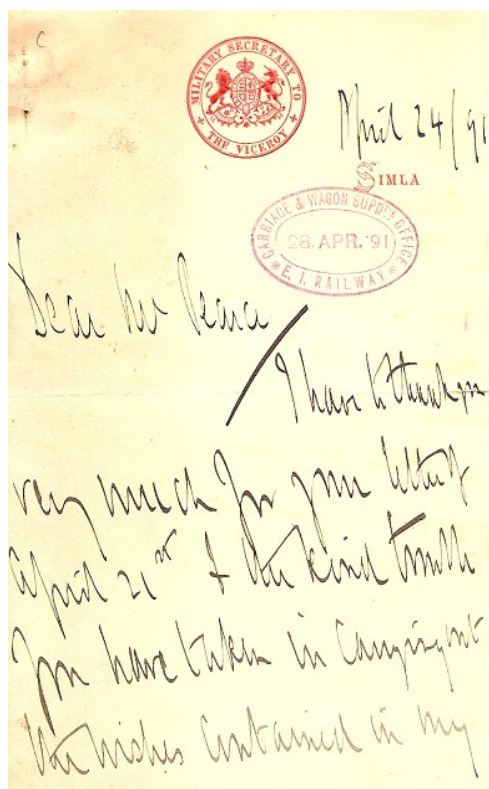 MILITARY SECRETARY TO
THE VICEROY
April 24/91
SIMLA
CARRIAGE & WAGON SUPDT'S OFFICE
28. APR. '91
E. I. RAILWAY
Dear Mr Pearce
I have to thank you
very much for your letter of
April 21st & the kind trouble
you have taken in carrying out
the wishes contained in my